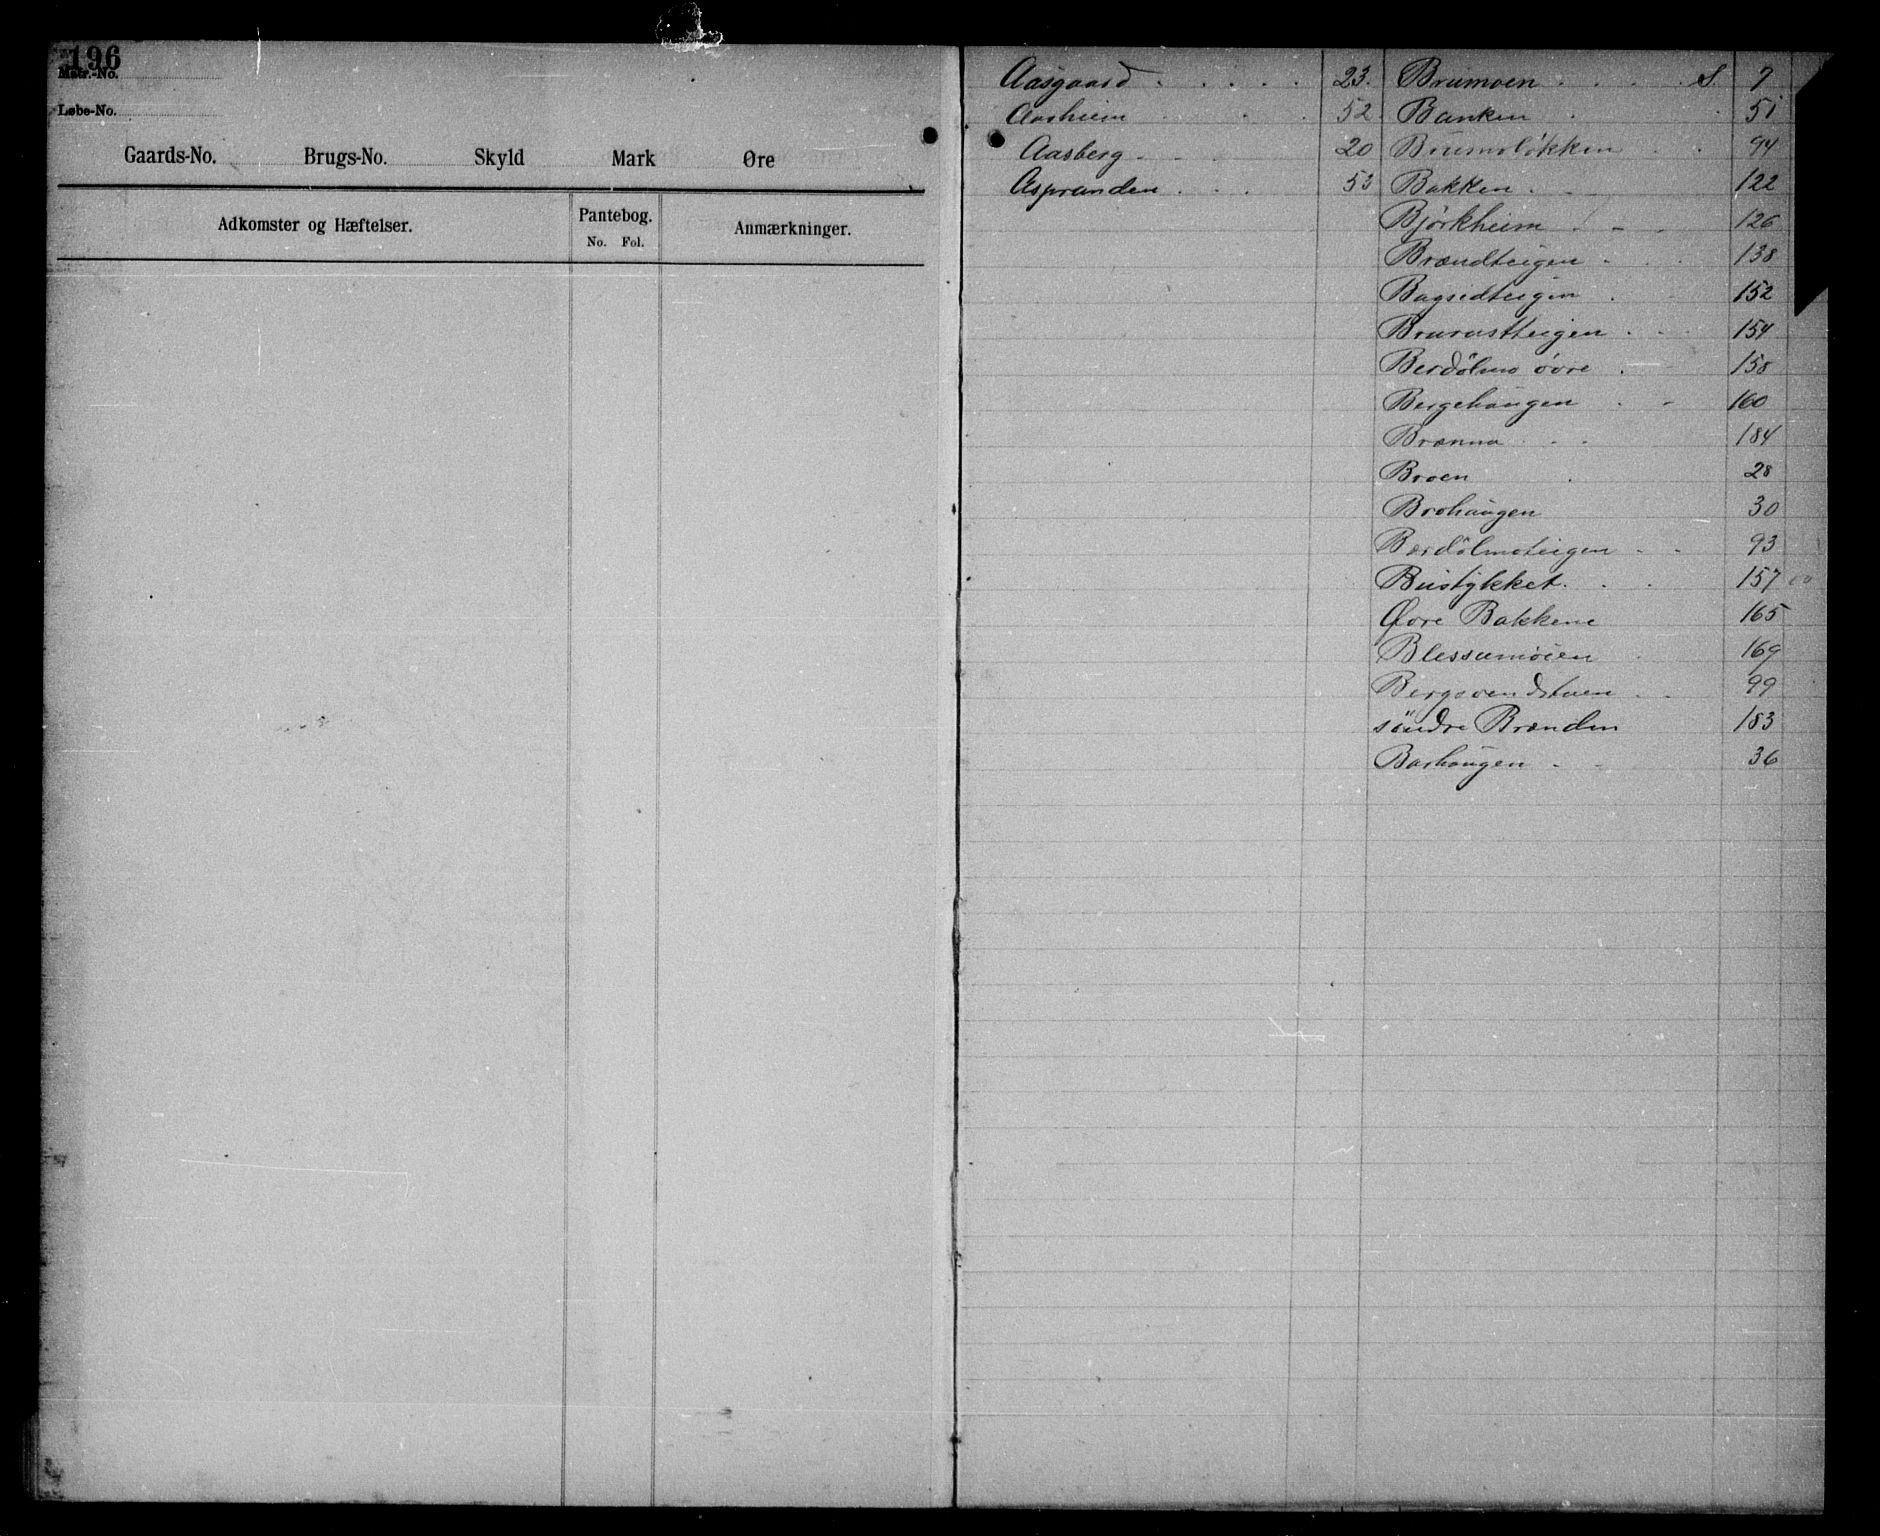 196
Matr.-No.
Løbe-No.
Gaards-No. Brugs-No. Skyld Mark Øre
Adkomster og Hæftelser.
Pantebog.
No. Fol.
Anmærkninger.
Aasgaard 23.
Aasheim 52
Aasberg 20
Aspranden 53
Brumoen S. 7
Banken 51
Brumoløkken 94
Bakken 122
Bjørkheim 126
Brændteigen 138
Bagsidteigen 152
Brurastteigen 154
Berdölmo övre 158
Bergehaugen 160
Brænna 184
Broen 28
Brohaugen 30
Berdølmoteigen 93
Bustykket 157
Øvre Bakkene 165
Blessumøien 169
Bergsvendstuen 99
söndre Brænden 183
Barhaugen 36